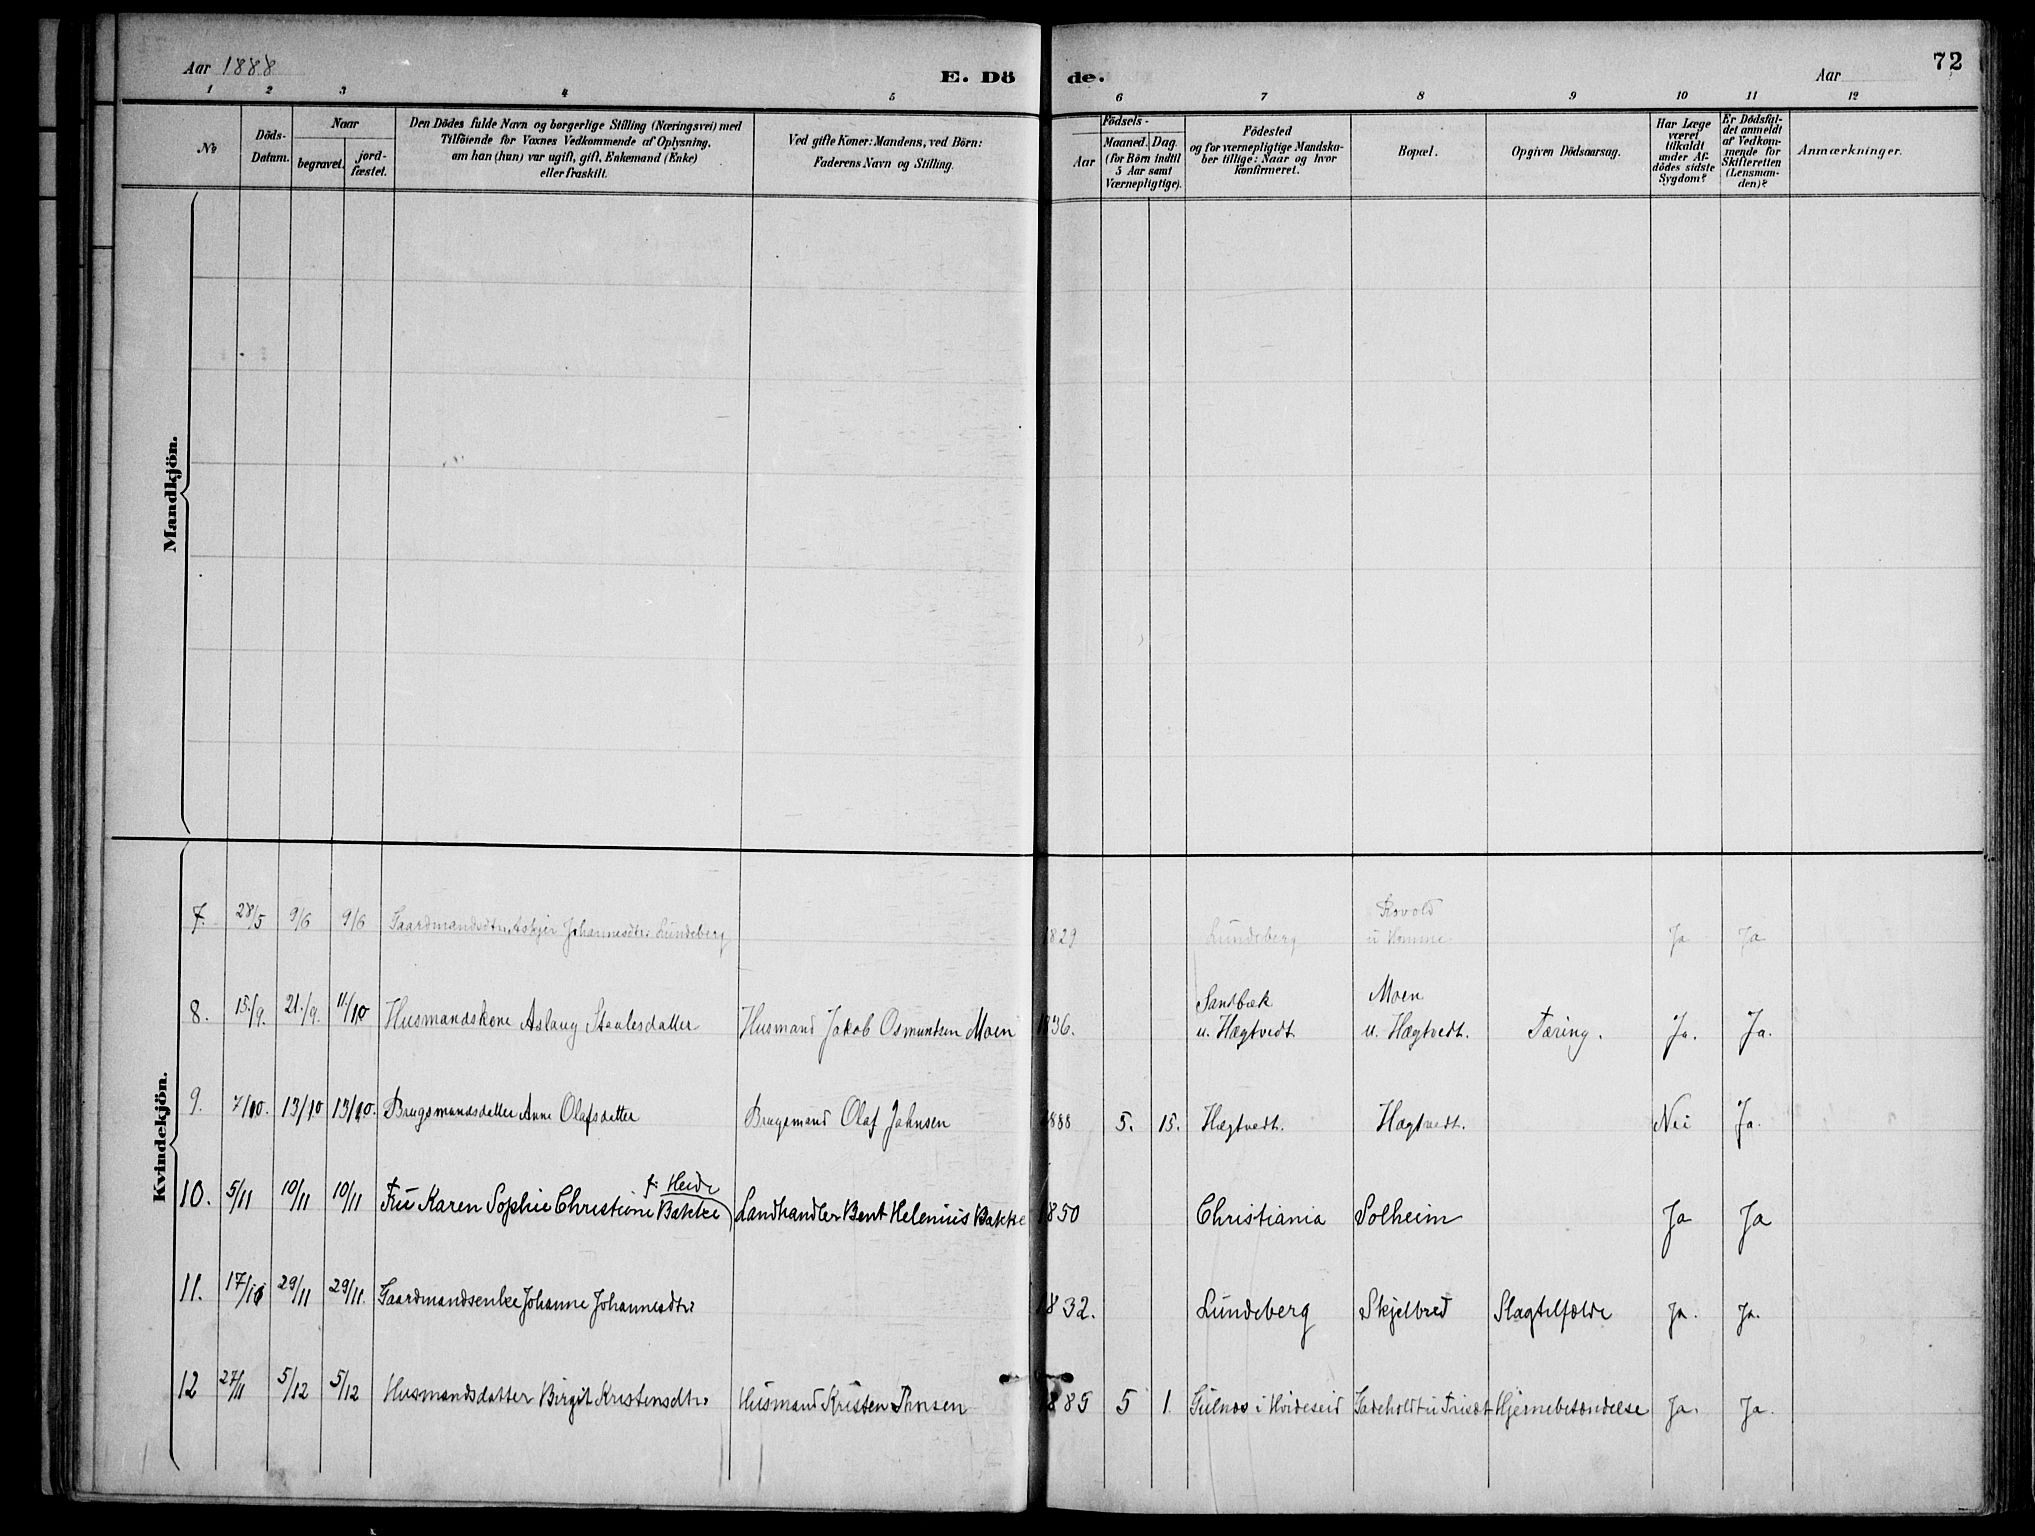 Aar 1888
E. Dö de.
Aar
72
1 2 3 4 5 6 7 8 9 10 11 12
No.
Döds-Datum.
Naar
begravet.
jord-fæstet.
Den Dödes fulde Navn og borgerlige Stilling (Næringsvei) med
Tilföiende for Voxnes Vedkommende af Oplysning,
om han (hun) var ugift, gift, Enkemand (Enke)
eller fraskilt.
Ved gifte Koner: Mandens, ved Börn:
Faderens Navn og Stilling.
Födsels-
Aar
Maaned. Dag.
(for Börn indtil
5 Aar samt
Værnepligtige).
Födested
og for værnepligtige Mandska-
ber tillige: Naar og hvor
konfirmeret.
Bopæl.
Opgiven Dödsaarsag.
Har Læge
været
tilkaldt
under Af-
dödes sidste
Sygdom?
Er Dödsfal-
det anmeldt
af Vedkom-
mende for
Skifteretten
(Lensman-
den)?
Anmærkninger.
Mandkjön.
Kvindekjön.
7. 28/5 9/6 9/6 Gaardmandsdtr. Askjer Johannesdtr. Lundeberg 1829 Lundeberg Rovold
u Homme Ja Ja
8. 15./9. 21./9. 11/10 Husmandskone Aslaug Staalesdatter Husmand Jakob Osmundsen Moen 1836. Sandbæk
u. Hægtvedt. Moen
u. Hægtvedt. Tæring. Ja. Ja.
9. 7/10. 13/10 13/10. Brugsmandsdatter Anne Olafsdatter Brugsmand Olaf Johnsen 1888 5. 15. Hægtvedt. Hægtvedt. Nei Ja.
10. 5/11 10/11 10/11 Fru Karen Sophie Christiane Bakke f. Heide Landhandler Bent Helenius Bakke 1850 Christiania Solheim Ja Ja
11. 17/11 29/11 29/11. Gaardmandsenke Johanne Johannesdtr. 1832. Lundeberg Skjelbred Slagtilfælde Ja. Ja.
12 27/11 5/12 5/12 Husmandsdatter Birgit Kristensdtr. Husmand Kristen Thorsen 1885 5 1. Gulnæs i Hvideseid Hjernebetændelse Ja. Ja.